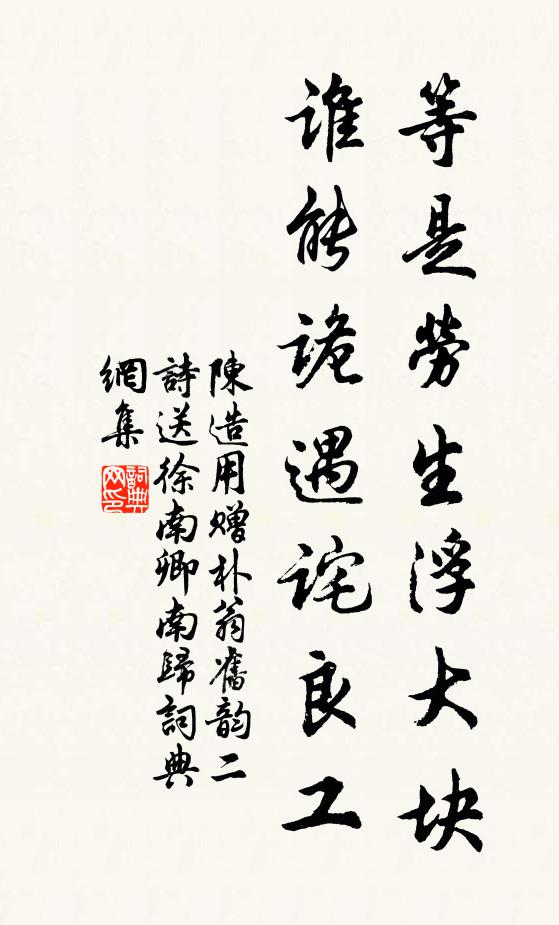 等是勞生浮大块
谁能詭遇詫良工
陳造用赠朴翁舊韵二
詩送徐南卿南歸詞典
網集
詞典网印